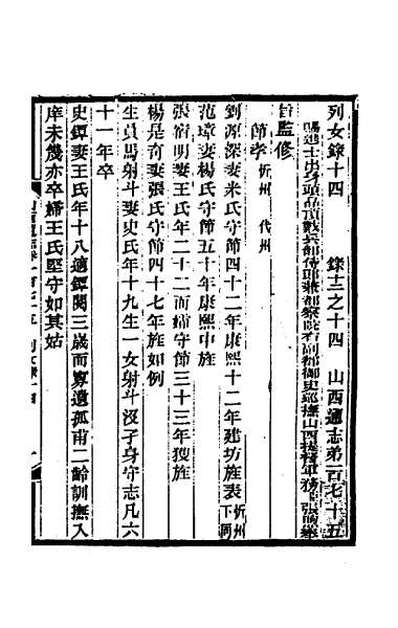 列女錄十四　錄十二之十四　山西通志第一百七十五
賜進士出身頭品頂戴兵部侍郎兼都察院右副都御史巡撫山西提督軍務張煦奏
旨監修
節孝 忻州 代州
劉源深妻米氏守節四十二年康熙十二年建坊旌表 忻州下同
范璋妻楊氏守節五十年康熙中旌
張宿明妻王氏年二十二而孀守節三十三年獲旌
楊是奇妻張氏守節四十七年旌如例
生員馬射斗妻史氏年十九生一女射斗沒孑身守志凡六
十一年卒
史鐔妻王氏年十八適鐔閱三歲而寡遺孤甫二齡訓撫入
庠未幾亦卒婦王氏堅守如其姑